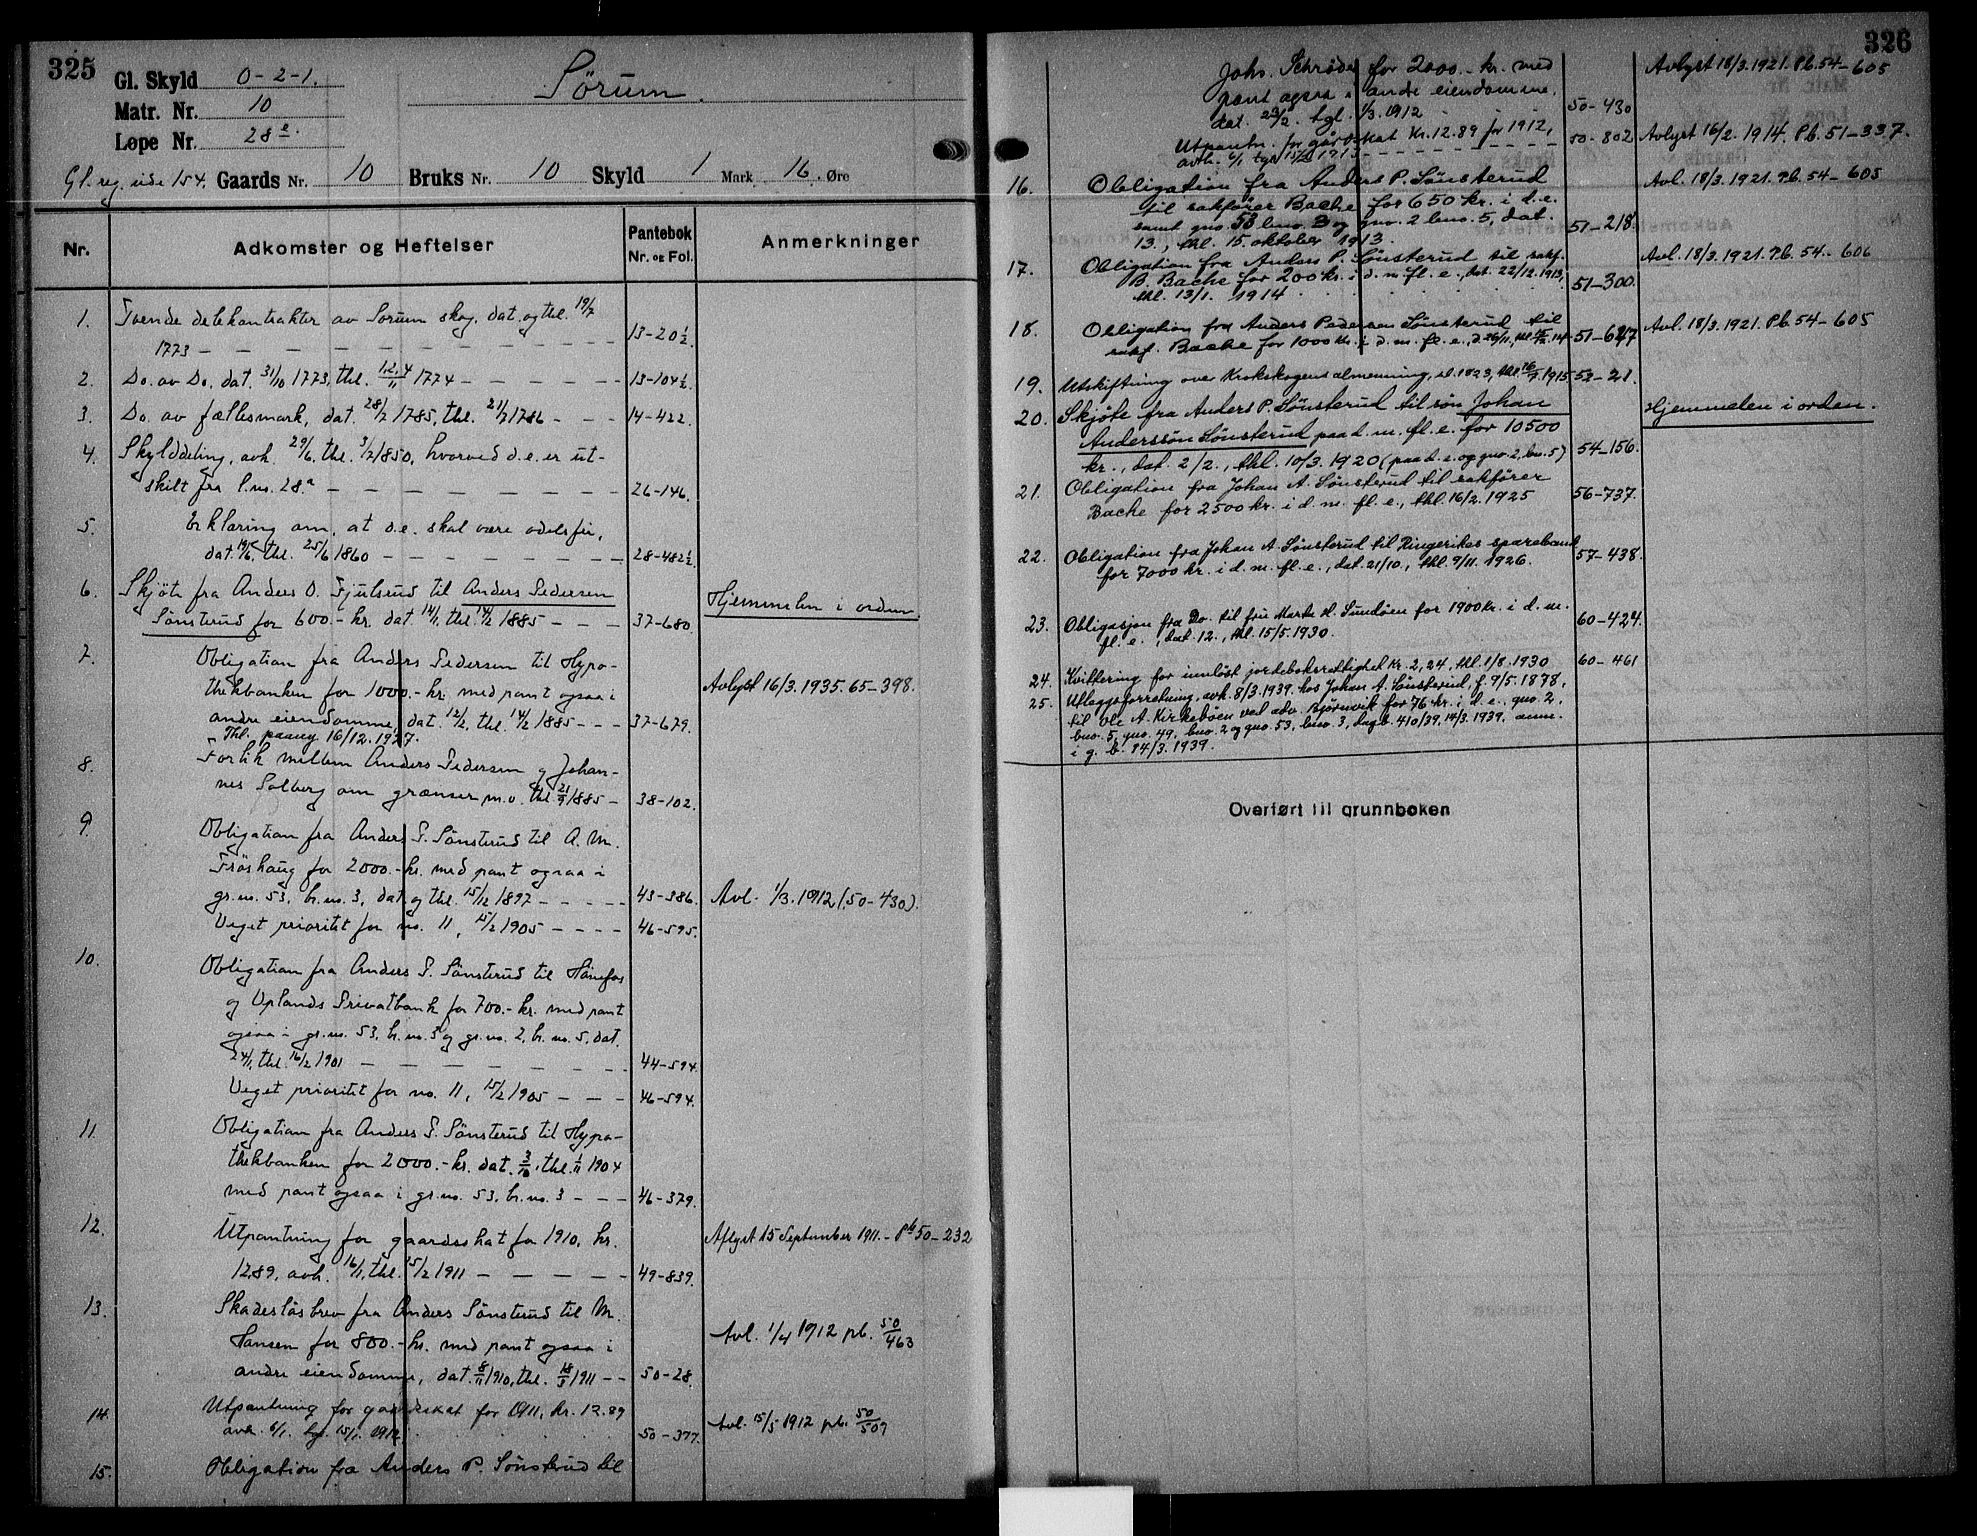 325
Gl. Skyld 0-2-1.
Sörum.
Matr. Nr. 10
Løpe Nr. 28 e.
Gl. reg. side 154. Gaards Nr. 10 Bruks Nr. 10 Skyld 1 Mark 16 Øre
Nr. Adkomster og Heftelser Pantebok Nr. og Fol. Anmerkninger
1. Tvende delekontrakter av Sørum skog, dat. og thl. 19/7
1773 — — — — — — — 13-20½.
2. Do. av Do. dat. 31/10 1773, thl. 1.2.4/11 1774 — — — — — 13-104½.
3. Do. av fællesmark, dat. 28/2 1785, thl. 21/2 1786 — — — 14-422.
4. Skylddeling, avh. 29/6, thl. 3/2 1850, hvorved d.e. er ut-
skilt fra l.no. 28.a — — — — — — — 26-146.
5. Erklæring om, at d.e. skal være odelsfri,
dat. 19/5, thl. 25/6 1860 — — — — — — 28-482½.
6. Skjöte fra Anders O. Fjulsrud til Anders Pedersen
Sönsterud for 600.- kr. dat. 14/1, thl. 14/2 1885 — — — 37-680. Hjemmelen i orden.
7. Obligation fra Anders Pedersen til Hypo-
thekbanken for 1000.- kr. med pant ogsaa i Avlyst 16/3. 1935. 65-398.
andre eiendomme, dat. 12/2, thl. 14/2 1885 — — — 37-679.
Thl. paany 16/12. 1927.
8. Forlik mellem Anders Pedersen og Johan-
nes Solberg om grænser m.v. thl. 21/9 1885 — 38-102.
9. Obligation fra Anders P. Sönsterud til A. M.
Fröshaug for 2000.- kr. med pant ogsaa i
gr.no. 53, br.no. 3, dat. og thl. 15/12 1897 — — — — — 43-386. Avl. 1/3. 1912 (50-430).
Veget prioritet for no. 11, 15/2 1905 — — — — 46-595.
10. Obligation fra Anders P. Sönsterud til Hönefos
og Oplands Privatbank for 700.- kr. med pant
ogsaa i gr.no. 53, br.no. 3 og gr.no. 2, br.no. 5, dat.
24/1, thl. 16/2 1901 — — — — — — — 44-594.
Veget prioritet for no. 11, 15/2 1905 — — — 46-594.
11. Obligation fra Anders P. Sönsterud til Hypo-
thekbanken for 2000.- kr. dat. 3/10, thl. 1/11 1904
med pant ogsaa i gr.no. 53, br.no. 3 — — — 46-379.
12. Utpantning for gaardsskat for 1910, kr. Aflyst 15 September 1911. - Pb 50-232
12,89, avh. 16/1, thl. 15/2 1911 — — — — — 49-839.
13. Skadeslösbrev fra Anders Sönsterud til M.
Hansen for 800.- kr. med pant ogsaa i Avl. 1/4 1912 pb. 50/463
andre eiendomme, dat. 8/11 1910, thl. 18/3 1911 — — 50-28.
14. Utpantning for gaardsskat for 1911, kr. 12.89
avh. 6/1. tgl. 15/1. 1912. 50-377. Avl. 15/5 1912 pb. 50/507
15. Obligation fra Anders P. Sönsterud til
326
Johs. Schrøder for 2000.- kr. med Avlyst 18/3. 1921. Pb. 54-605
pant ogsaa i andre eiendomme.
dat. 29/2. tgl. 1/3. 1912 50-430
Utpantn. for gårdskat kr. 12.89 for 1912, 50-802 Avlyst 16/2. 1914. Pb. 51-337.
avh. 6/1 tgl. 15/2 1913 — — — — — —
16. Obligation fra Anders P. Sønsterud Avl. 18/3. 1921. Pb. 54-605
til sakfører Bache for 650 kr. i d.e.
samt gno. 53 bno. 3 og gno. 2 bno. 5, dat. 51-218
13., thl. 15 oktober 1913.
17. Obligation fra Anders P. Sønsterud til sakf. Avl. 18/3. 1921. Pb. 54-606
B. Bache for 200 kr. i d. m. fl. e., dat. 22/12. 1913,
thl. 13/1. 1914 51-300.
18. Obligation fra Anders Pedersen Sønsterud til Avl. 18/3. 1921. Pb. 54-605
sakf. Bache for 1000 kr. i d. m. fl. e., d. 26/11, thl. 15/12. 14 51-627
19. Utskiftning over Krokskogens almenning, sl. 1823, thl. 16/7. 1915 52-21.
20. Skjöte fra Anders P. Sønsterud til søn Johan Hjemmelen i orden.
Anderssøn Sønsterud paa d. m. fl. e. for 10500
kr., dat. 2/2., thl. 10/3. 1920 (paa d.e. og gno. 2, bno. 5) 54-156.
21. Obligation fra Johan A. Sønsterud til sakfører
Bache for 2500 kr. i d. m. fl. e., thl. 16/2. 1925 56-737.
22. Obligation fra Johan A. Sønsterud til Ringerikes sparebank
for 7000 kr. i d. m. fl. e., dat. 21/10., thl. 9/11. 1926. 57-438.
23. Obligasjon fra Do. til fru Marta H. Sundøen for 1900 kr. i d. m.
fl. e., dat. 12., thl. 15/5. 1930. 60-424.
24. Kvittering for innløst jordeboksrettighet kr. 2,24, thl. 1/8. 1930 60-461
25. Utleggsforretning, avh. 8/3. 1939. hos Johan A. Sønsterud, f. 9/5. 1878,
til Ole A. Kirkebøen ved adv. Bjørnvik for 76 kr. i d.e., gno. 2,
bno. 5, gno. 49, bno. 2 og gno. 53, bno. 3, dagb. 410/39. 14/3. 1939. anm.
i g. b. 14/3. 1939.
Overført til grunnboken